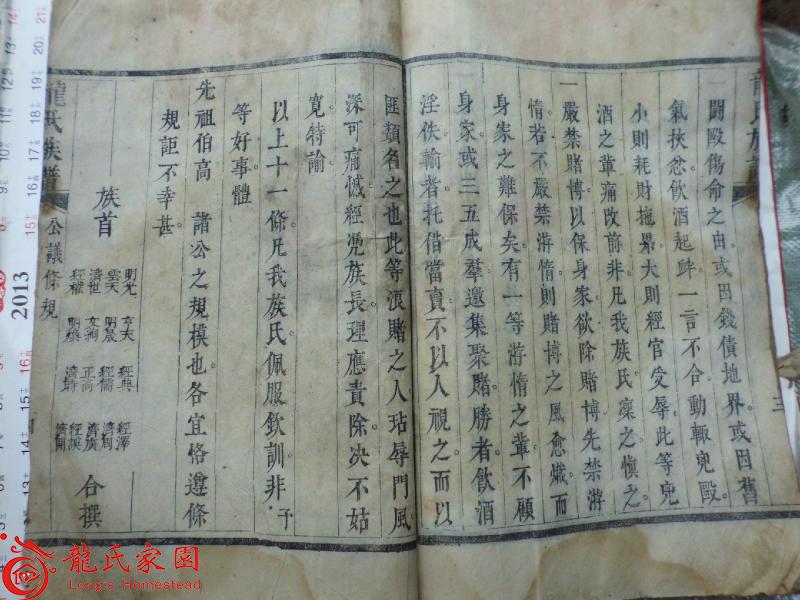 龍氏族譜
三
一鬪毆傷命之由或因錢債地界或因舊
氣挾忿飲酒起衅一言不合動輒兇毆
小則耗財拖累大則經官受辱此等兇
酒之輩痛改前非凡我族氏凜之慎之
一嚴禁賭博以保身家欲除賭博先禁游
惰若不嚴禁游惰則賭博之風愈熾而
身家之難保矣有一等游惰之輩不顧
身家或三五成羣邀集聚賭勝者飲酒
淫佚輸者托借當賣不以人視之而以
匪類名之也此等浪賭之人玷辱門風
深可痛憾經凴族長理應責除决不姑
寬特諭
以上十一條凡我族氏佩服欽訓非予
等好事體
先祖伯高 諸公之規模也各宜恪遵條
規詎不幸甚
族首
明光 亨天 經典 經澤
雲天 明晟 經儒 濟周
濟世 文炯 正高 濟廣
經權 明煥 濟時
合撰
龍氏族譜
公議條規
2013
龍氏家園
Long's Homestead